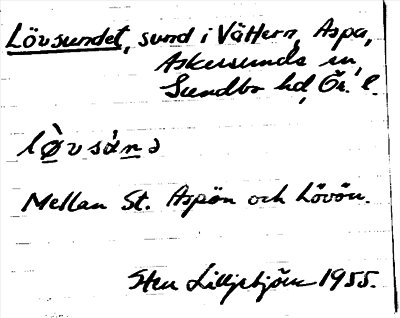 Lövsundet, sund i Vättern, Aspa,
Askersunds sn,
Sundbo hd, Ör. l.
lø̀vsànə
Mellan St. Aspön och Lövön.
Sten Lilljebjörn 1955.